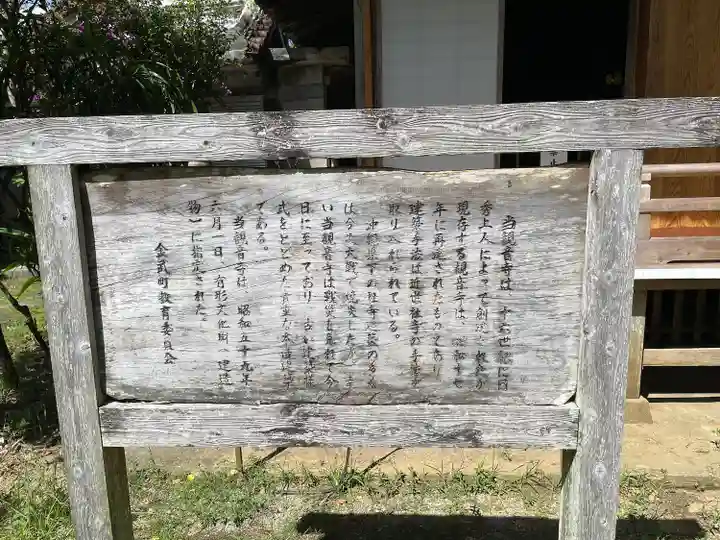 当観音寺は、十六世紀に日
秀上人によって創建
現存する観音寺は、昭和十七
年に再建されたものであり
建築手法は近世社寺の手法
取り入れられている。
沖縄県下の社寺建築の多く
は今次大戦で焼失した
い当観音寺は戦災を免れて今
日に至っており、古い建築様
式をとどめた貴重な木造建築
である。
当観音寺は、昭和五十九年
六月一日、有形文化財(建造
物)に指定された。
金武町教育委員会